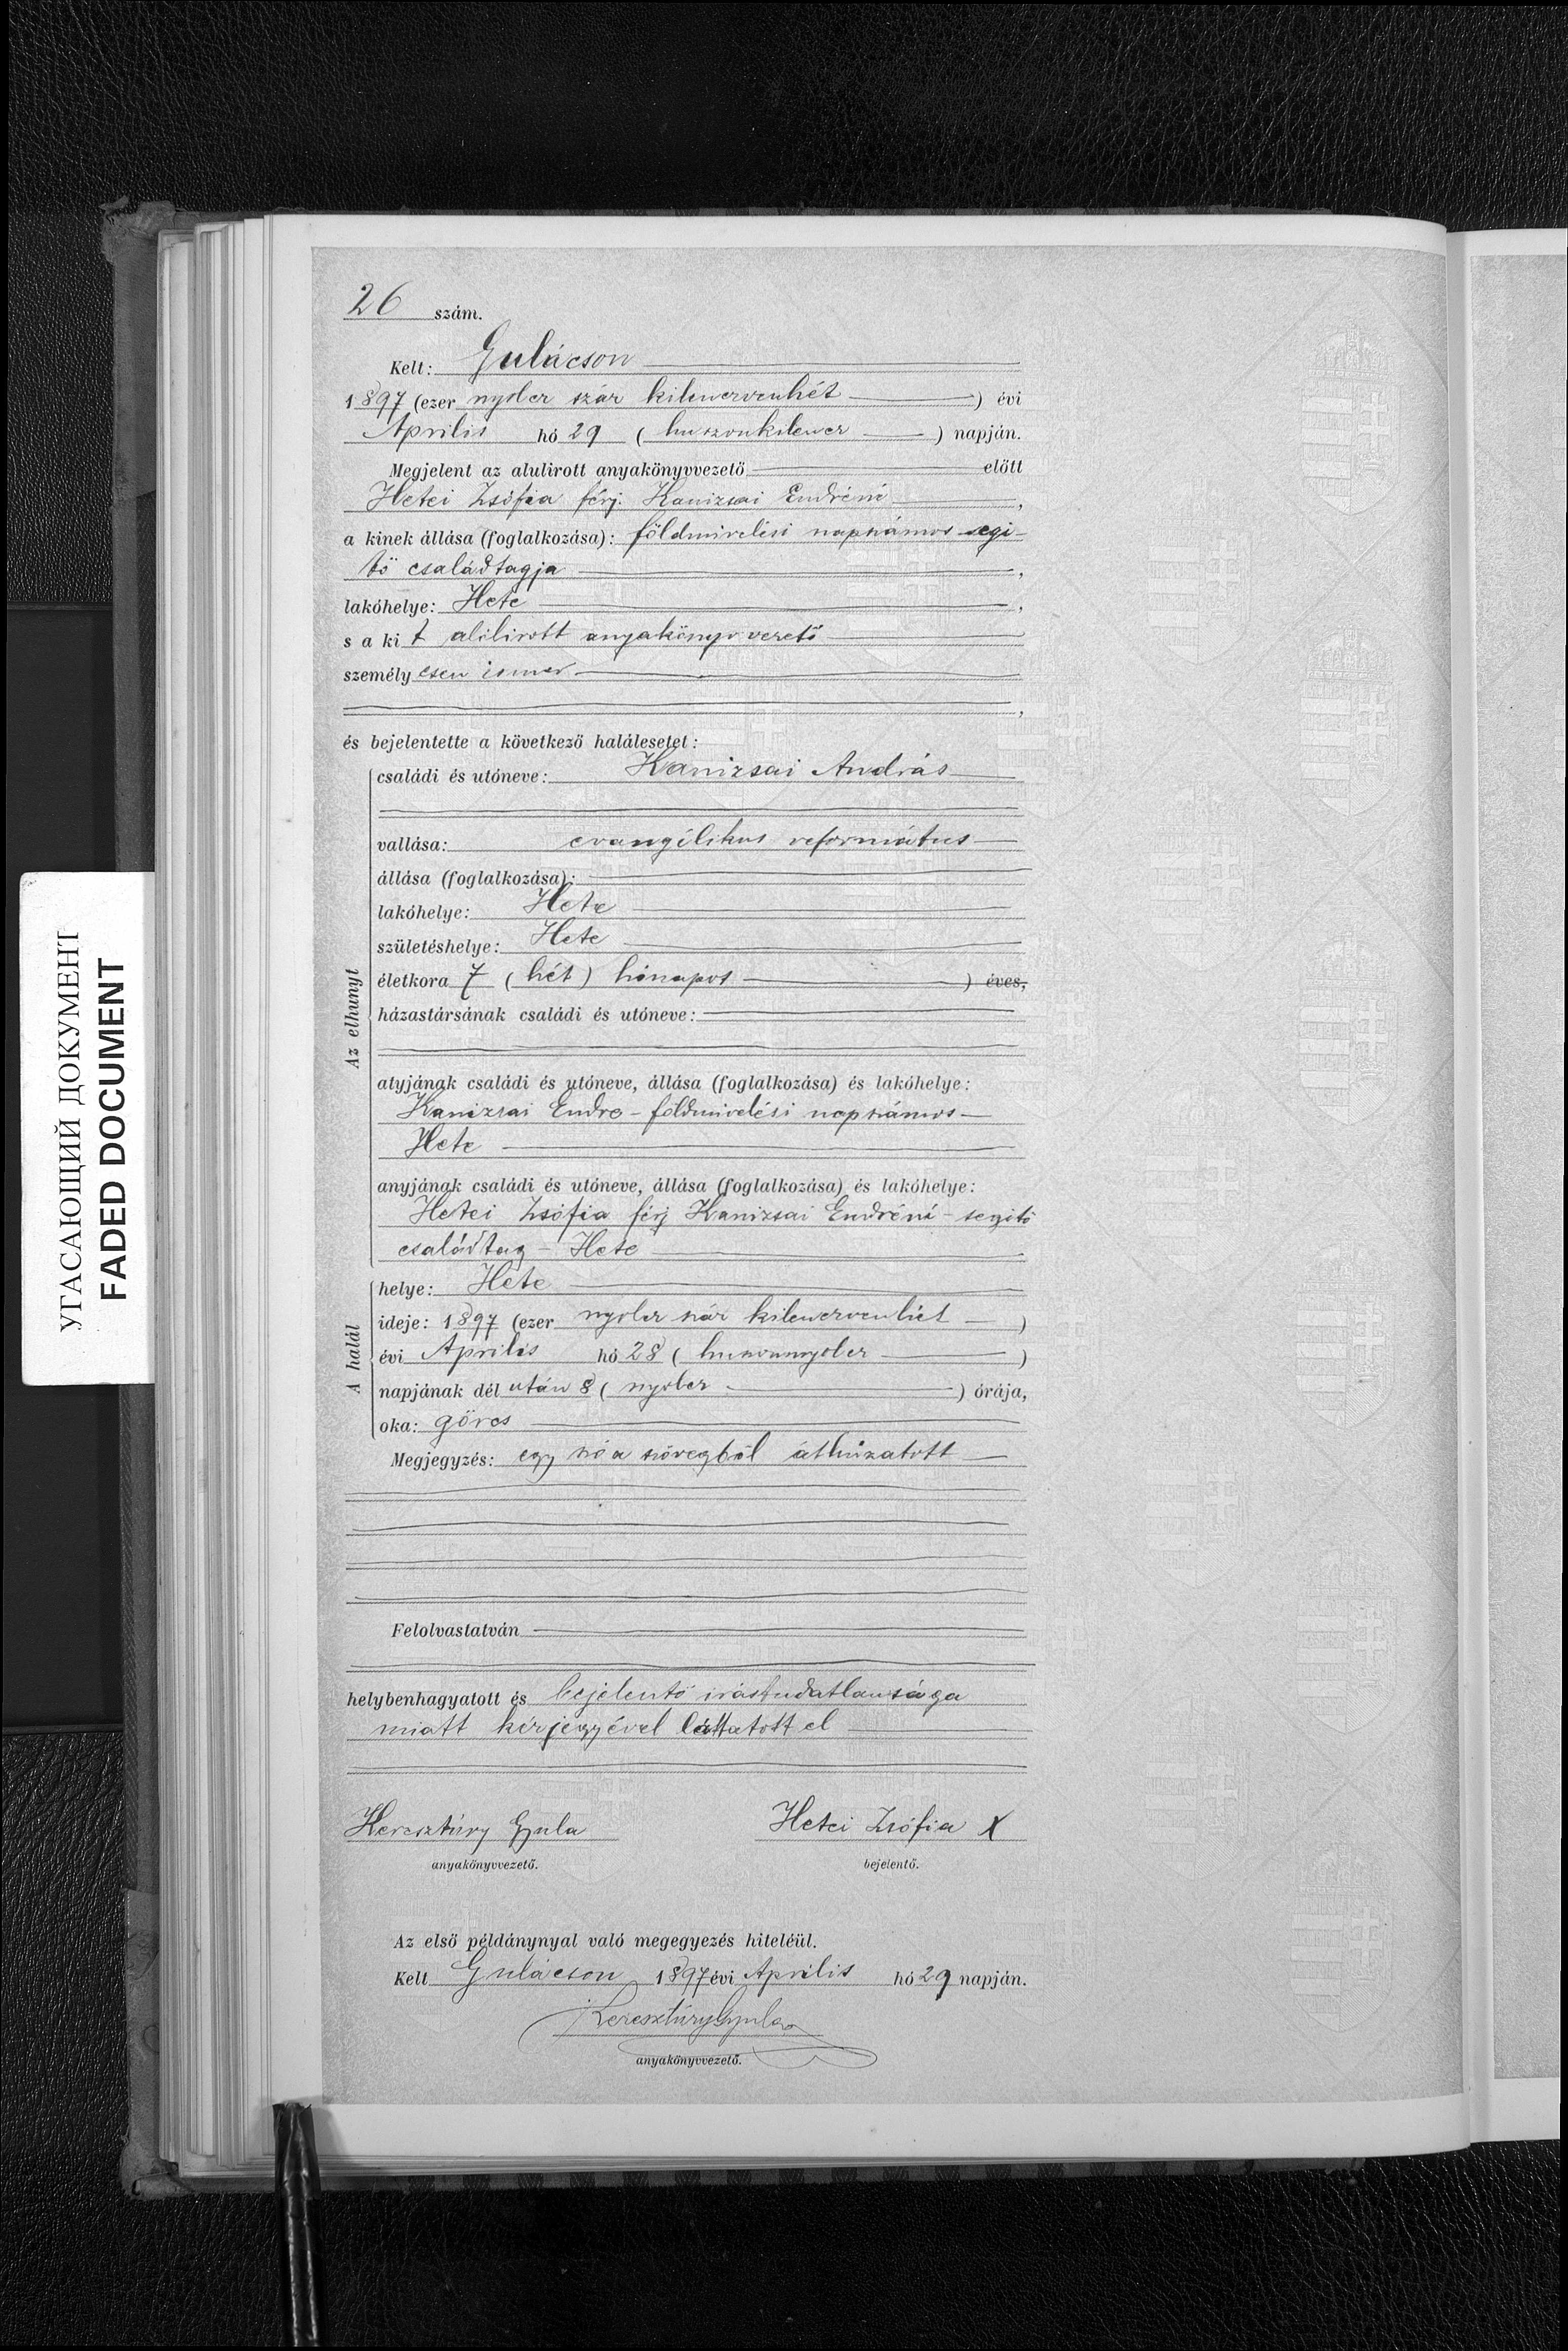 26 szám.
Kelt: Gulácson
1897 (ezer nyolcz száz kilenczvenhét) évi
Aprilis hó 29 (huszonkilencz) napján.
Megjelent az alulirott anyakönyvvezető előtt
Hetei Zsófia férj. Kanizsai Endréné,
a kinek állása (foglalkozása): földmivelési napszámos segi-
tő családtagja,
lakóhelye: Hete,
s a kit alólirott anyakönyvvezető
személyesen ismer
,
és bejelentette a következő halálesetet:
Az elhunyt
családi és utóneve: Kanizsai András
vallása: evangélikus református
állása (foglalkozása):
lakóhelye: Hete
születéshelye: Hete
életkora 7 (hét) hónapos ) éves,
házastársának családi és utóneve:
atyjának családi és utóneve, állása (foglalkozása) és lakóhelye:
Kanizsai Endre - földmivelési napszámos -
Hete
anyjának családi és utóneve, állása (foglalkozása) és lakóhelye:
Hetei Zsófia férj Kanizsai Endréné - segitő
családtag - Hete
A halál
helye: Hete
ideje: 1897 (ezer nyolcz száz kilenczvenhét)
évi Aprilis hó 28 (huszonnyolcz)
napjának dél után 8 (nyolcz) órája,
oka: görcs
Megjegyzés: egy szó a szövegből áthúzatott
Felolvastatván
helybenhagyatott és bejelentő irástudatlansága
miatt kézjegyével láttatott el
Keresztúry Gyula
anyakönyvvezető.
Hetei Zsófia X
bejelentő.
Az első példánynyal való megegyezés hiteléül.
Kelt Gulácson 1897 évi Aprilis hó 29 napján.
Keresztúry Gyula
anyakönyvvezető.
УГАСАЮЩИЙ ДОКУМЕНТ
FADED DOCUMENT